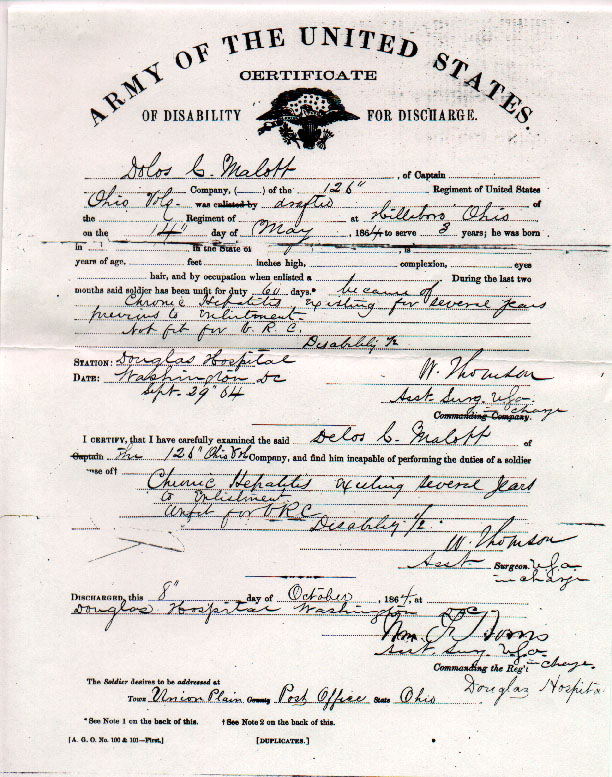 ARMY OF THE UNITED STATES.
CERTIFICATE
OF DISABILITY FOR DISCHARGE.
Dolos C. Malott, of Captain
Company, ( ) of the 126" Regiment of United States
Ohio Vols. was enlisted by drafted of
the Regiment of at Hillsboro Ohio
on the 14" day of May, 1864 to serve 3 years; he was born
in in the State of , is
years of age, feet inches high, complexion, eyes
hair, and by occupation when enlisted a During the last two
months said soldier has been unfit for duty 60 days.* because of
Chronic Hepatitis, existing for several years
previous to enlistment
Not fit for V. R. C.
Disability 1/2
STATION: Douglas Hospital
DATE: Washington DC
Sept. 29" 64
W. Thomson
Asst Surg. U.S.A.
in charge
Commanding Company.
I CERTIFY, that I have carefully examined the said Delos C. Malott of
Captain the 126" Ohio Vols Company, and find him incapable of performing the duties of a soldier
use of†
Chronic Hepatitis existing several years
to enlistment
Unfit for V.R.C.
Disability 1/2.
W. Thomson
Asst Surgeon. U.S.A.
in charge
DISCHARGED, this 8" day of October, 1864, at
Douglas Hospital Washington DC
Wm. F.
Asst Surg U.S.A.
in charge
Commanding the Reg't
Douglas Hospital
The Soldier desires to be addressed at
Town Union Plain County Post Office State Ohio
*See Note 1 on the back of this. †See Note 2 on the back of this.
[A. G. O. No. 100 & 101—First.] [DUPLICATES.]